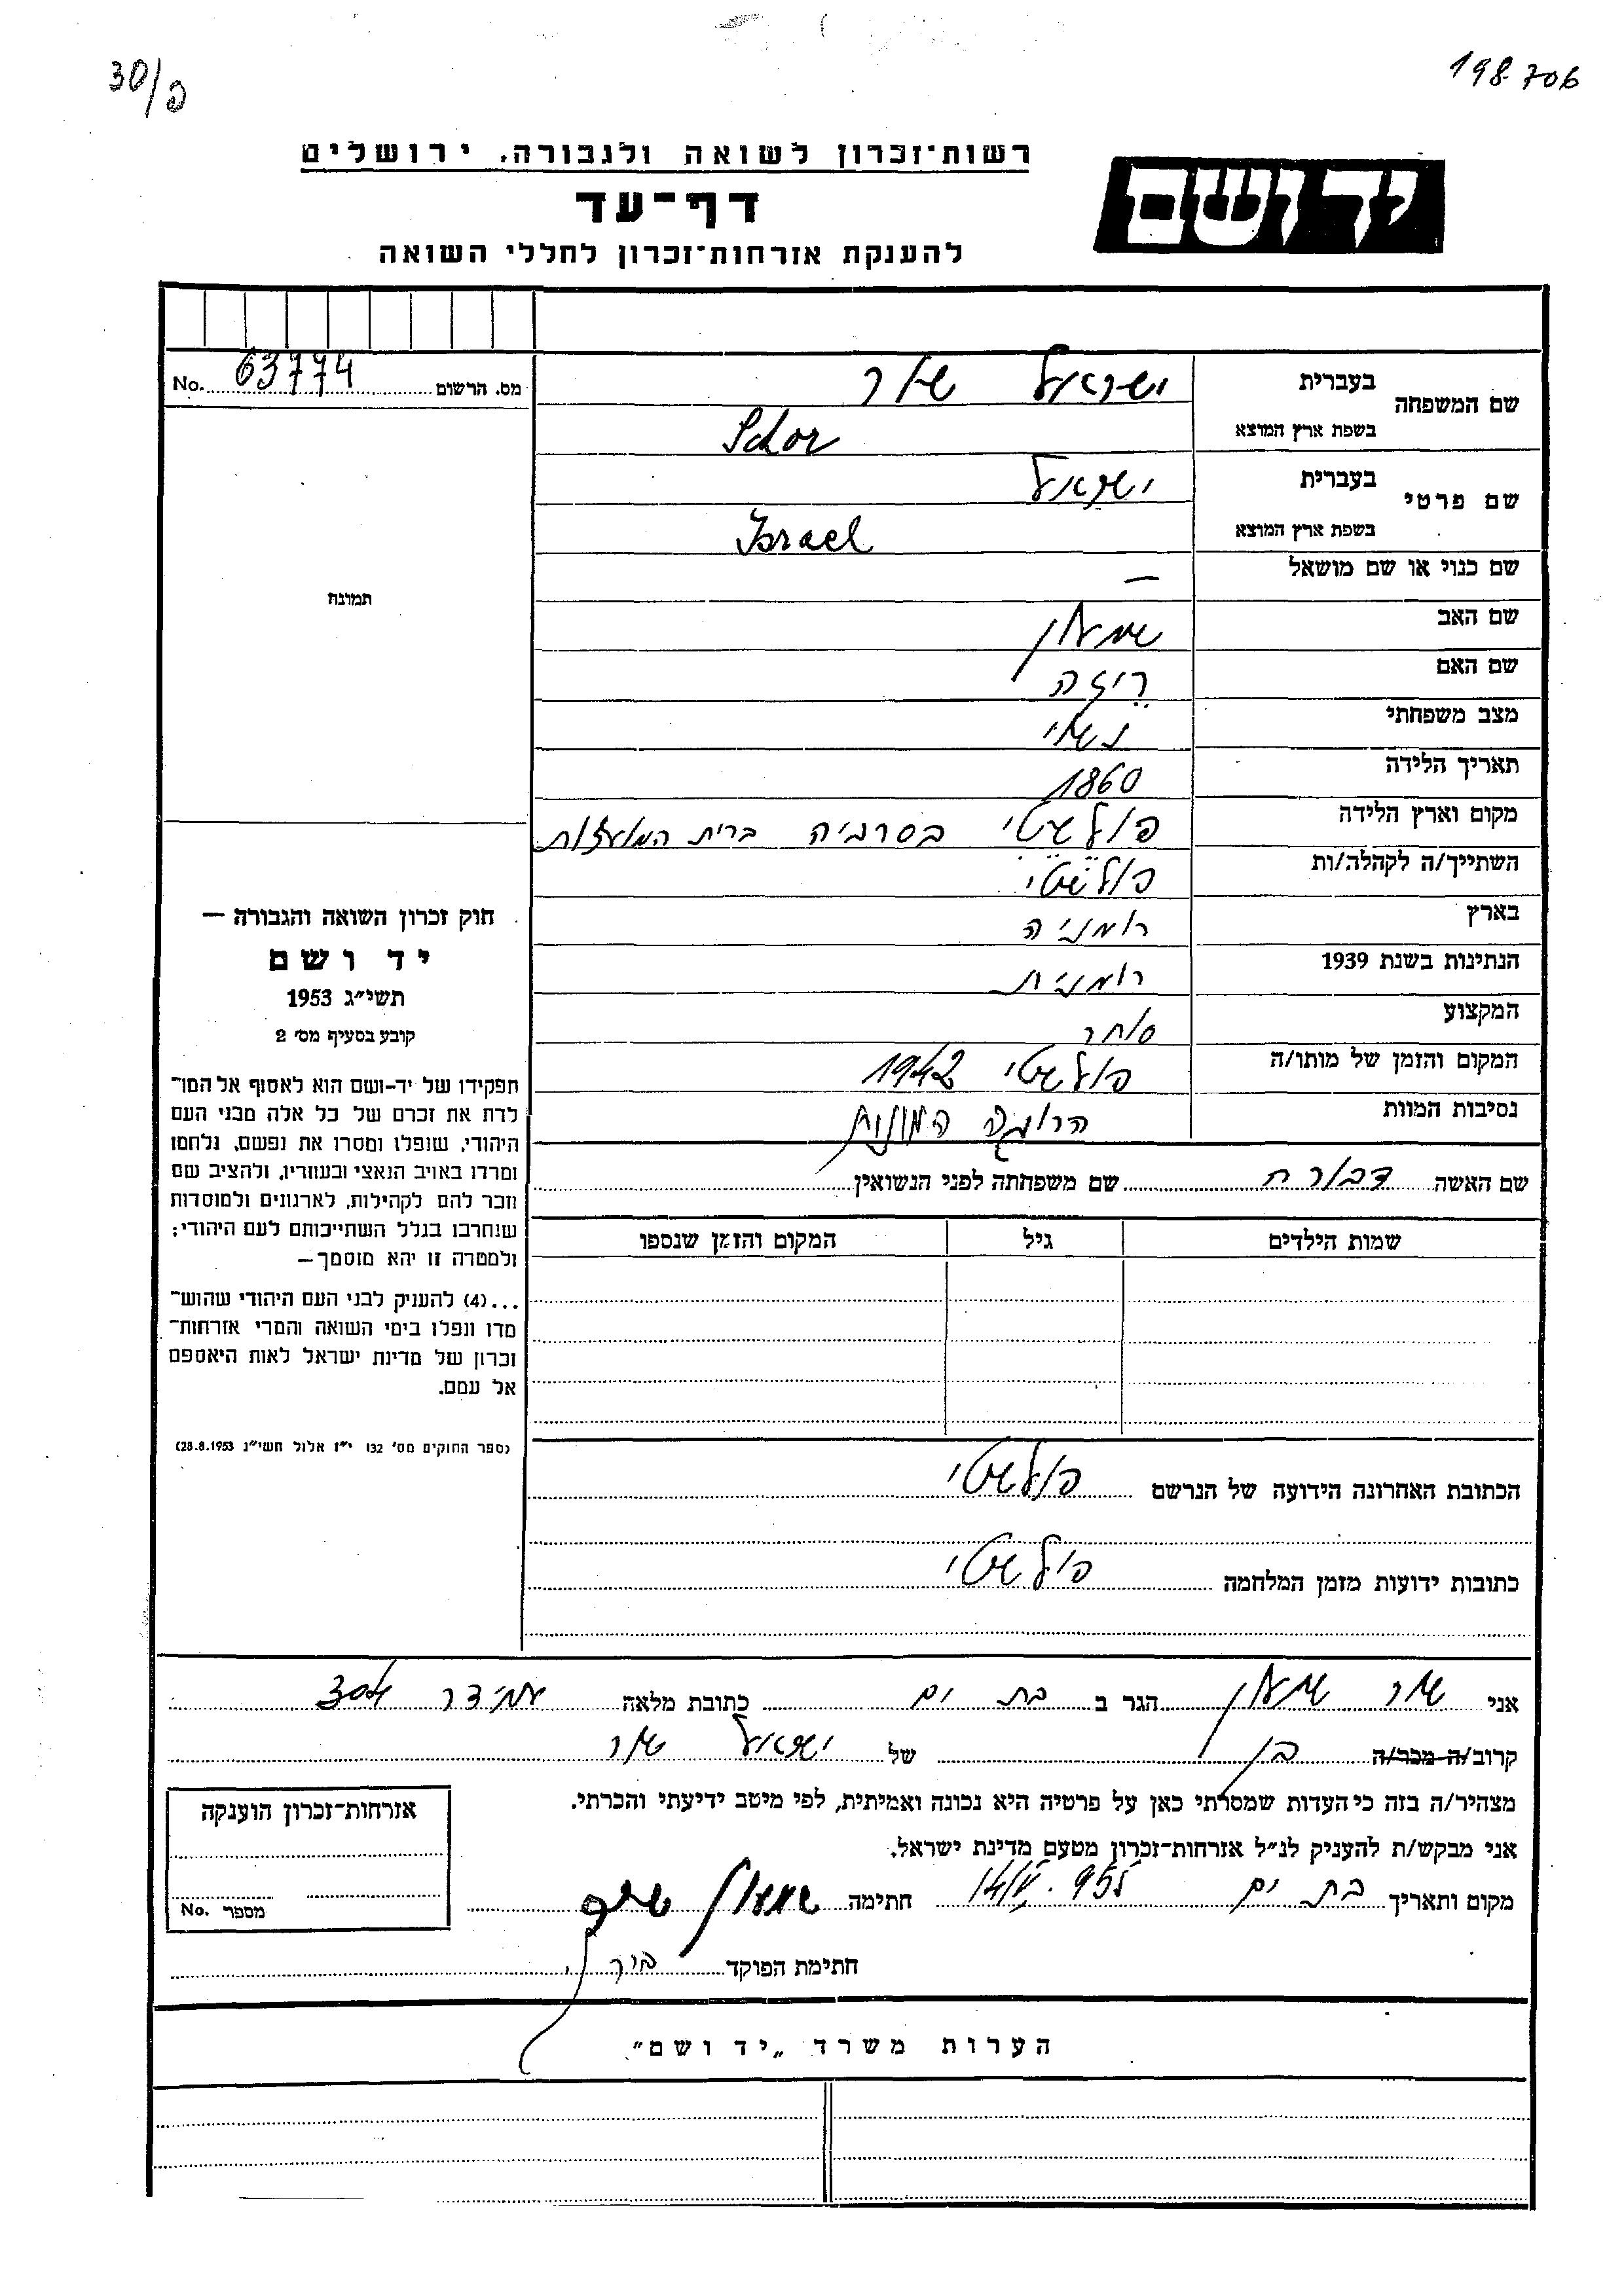 30/פ
198706
רשות־זכרון לשואה ולגבורה, ירושלים
דף־עד
להענקת אזרחות־זכרון לחללי השואה
יד ושם
מס. הרשום 63774 No.
שם המשפחה
בעברית ישראל שור
בשפת ארץ המוצא Schor
שם פרטי
בעברית ישראל
בשפת ארץ המוצא Israel
שם כנוי או שם מושאל —
שם האב שמעון
שם האם רייזה
מצב משפחתי נשוי
תאריך הלידה 1860
מקום וארץ הלידה פולשטי בסרביה ברית המועצות
השתייך/ה לקהלה/ות פולשטי
בארץ רומניה
הנתינות בשנת 1939 רומנית
המקצוע סוחר
המקום והזמן של מותו/ה פולשטי 1942
נסיבות המוות
תמונה
חוק זכרון השואה והגבורה —
יד ושם
תשי״ג 1953
קובע בסעיף מס׳ 2
תפקידו של יד-ושם הוא לאסוף אל המו־
לדת את זכרם של כל אלה מבני העם
היהודי, שנפלו ומסרו את נפשם, נלחמו
ומרדו באויב הנאצי ובעוזריו, ולהציב שם
וזכר להם לקהילות, לארגונים ולמוסדות
שנחרבו בגלל השתייכותם לעם היהודי;
ולמטרה זו יהא מוסמך—
...(4) להעניק לבני העם היהודי שהוש־
מדו ונפלו בימי השואה והמרי אזרחות־
זכרון של מדינת ישראל לאות היאספם
אל עמם.
(ספר החוקים מס׳ 132 י״ז אלול תשי״ג 28.8.1953)
שם האשה דבורה שם משפחתה לפני הנשואין
שמות הילדים גיל המקום והזמן שנספו
הכתובת האחרונה הידועה של הנרשם פולשטי
כתובות ידועות מזמן המלחמה פולשטי
אני שור שמעון הגר ב בת ים כתובת מלאה עמידר 304
קרוב/ה מכר/ה בן של ישראל שור
מצהיר/ה בזה כי העדות שמסרתי כאן על פרטיה היא נכונה ואמיתית, לפי מיטב ידיעתי והכרתי.
אני מבקש/ת להעניק לנ״ל אזרחות־זכרון מטעם מדינת ישראל.
מקום ותאריך בת ים חתימה שמעון שור
חתימת הפוקד
אזרחות־זכרון הוענקה
מספר No.
הערות משרד „יד ושם״